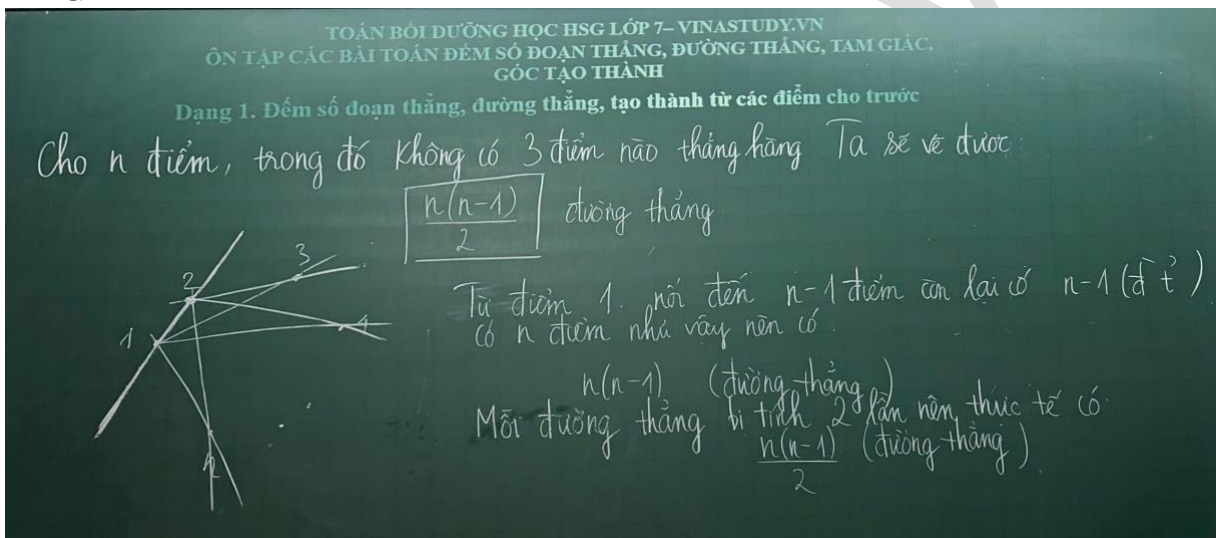 TOÁN BỒI DƯỠNG HỌC HSG LỚP 7– VINASTUDY.VN
ÔN TẬP CÁC BÀI TOÁN ĐẾM SỐ ĐOẠN THẲNG, ĐƯỜNG THẲNG, TAM GIÁC,
GÓC TẠO THÀNH
Dạng 1. Đếm số đoạn thẳng, đường thẳng, tạo thành từ các điểm cho trước
Cho n điểm, trong đó không có 3 điểm nào thẳng hàng Ta sẽ vẽ được:
n(n-1)/2 đường thẳng
Từ điểm 1. nối đến n-1 điểm còn lại có n-1 (đ t)
Có n điểm như vậy nên có:
n(n-1) (đường thẳng)
Mỗi đường thẳng bị tính 2 lần nên thực tế có:
n(n-1)/2 (đường thẳng)
1
2
3
4
n